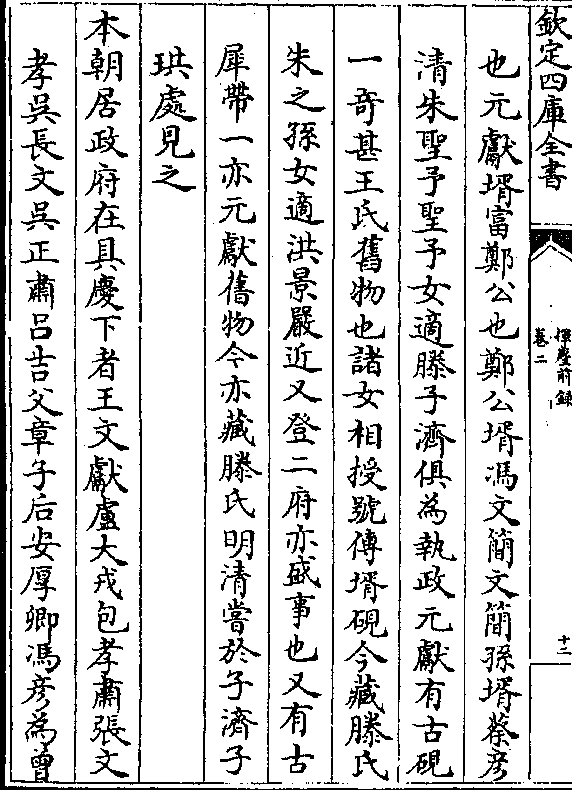 欽定四庫全書
揮麈前錄
卷二
十二
也元獻壻富鄭公也鄭公壻馮文簡文簡孫壻蔡彦
清朱聖予聖予女適滕子濟俱為執政元獻有古硯
一竒甚王氏舊物也諸女相授號傳壻硯今藏滕氏
朱之孫女適洪景嚴近又登二府亦盛事也又有古
犀帶一亦元獻舊物今亦藏滕氏明清嘗於子濟子
珙處見之
本朝居政府在具慶下者王文獻盧大戎包孝肅張文
孝吳長文吳正肅呂吉父章子后安厚卿馮彦為曾